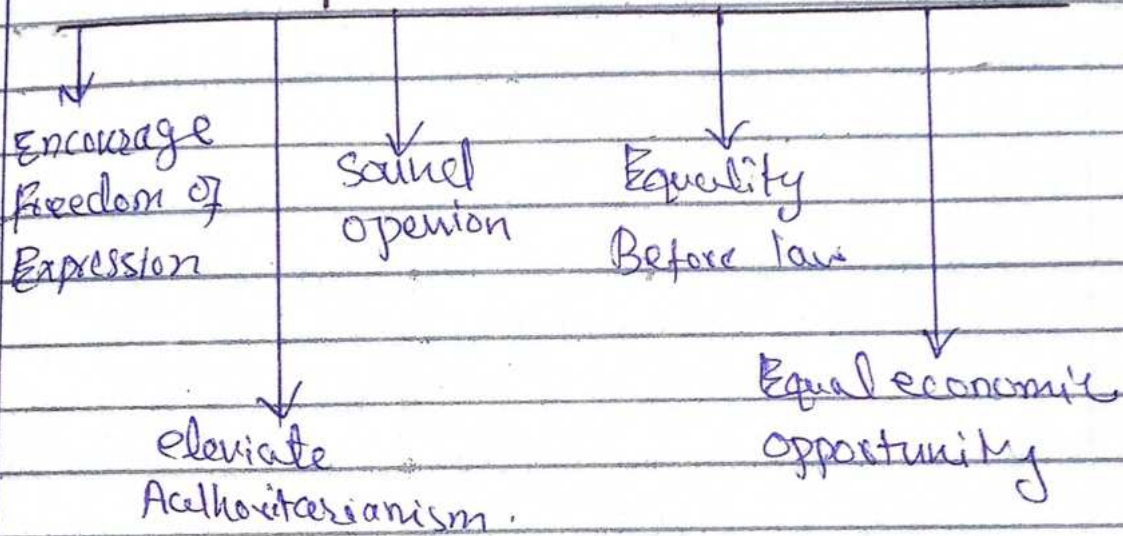 Encourage
Freedom of
Expression
eleviate
Authoritarianism.
Sound
openion
Equality
Before law
Equal economic
opportunity